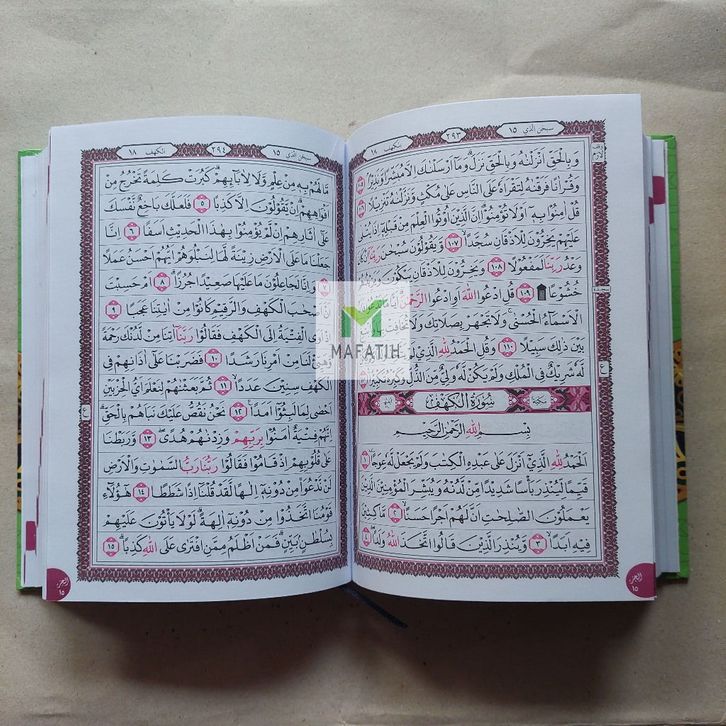 سبحن الذي ١٥
٢٩٣
الكهف ١٨
وَبِالْحَقِّ اَنْزَلْنٰهُ وَبِالْحَقِّ نَزَلَ وَمَآ اَرْسَلْنٰكَ اِلَّا مُبَشِّرًا وَّنَذِيْرًا
وَقُرْاٰنًا فَرَقْنٰهُ لِتَقْرَاَهٗ عَلَى النَّاسِ عَلٰى مُكْثٍ وَّنَزَّلْنٰهُ تَنْزِيْلًا
قُلْ اٰمِنُوْا بِهٖٓ اَوْ لَا تُؤْمِنُوْا اِنَّ الَّذِيْنَ اُوْتُوا الْعِلْمَ مِنْ قَبْلِهٖٓ اِذَا يُتْلٰى
عَلَيْهِمْ يَخِرُّوْنَ لِلْاَذْقَانِ سُجَّدًا ١٠٧ وَّيَقُوْلُوْنَ سُبْحٰنَ رَبِّنَآ اِنْ كَانَ
وَعْدُ رَبِّنَا لَمَفْعُوْلًا ١٠٨ وَيَخِرُّوْنَ لِلْاَذْقَانِ يَبْكُوْنَ
خُشُوْعًا ١٠٩ قُلِ ادْعُوا اللّٰهَ اَوِ ادْعُوا الرَّحْمٰنَ
الْاَسْمَاۤءُ الْحُسْنٰى وَلَا تَجْهَرْ بِصَلَاتِكَ وَلَا تُخَافِتْ
بَيْنَ ذٰلِكَ سَبِيْلًا ١١٠ وَقُلِ الْحَمْدُ لِلّٰهِ الَّذِيْ
لَّهٗ شَرِيْكٌ فِى الْمُلْكِ وَلَمْ يَكُنْ لَّهٗ وَلِيٌّ مِّنَ الذُّلِّ وَكَبِّرْهُ تَكْبِيْرًا
سُوْرَةُ الْكَهْفِ
بِسْمِ اللّٰهِ الرَّحْمٰنِ الرَّحِيْمِ
اَلْحَمْدُ لِلّٰهِ الَّذِيْٓ اَنْزَلَ عَلٰى عَبْدِهِ الْكِتٰبَ وَلَمْ يَجْعَلْ لَّهٗ عِوَجًا ١
قَيِّمًا لِّيُنْذِرَ بَأْسًا شَدِيْدًا مِّنْ لَّدُنْهُ وَيُبَشِّرَ الْمُؤْمِنِيْنَ الَّذِيْنَ
يَعْمَلُوْنَ الصّٰلِحٰتِ اَنَّ لَهُمْ اَجْرًا حَسَنًا ٢ مَّاكِثِيْنَ
فِيْهِ اَبَدًا ٣ وَّيُنْذِرَ الَّذِيْنَ قَالُوا اتَّخَذَ اللّٰهُ وَلَدًا
الجزء ١٥
سبحن الذي ١٥
٢٩٤
الكهف ١٨
مَا لَهُمْ بِهٖ مِنْ عِلْمٍ وَّلَا لِاٰبَاۤىِٕهِمْ كَبُرَتْ كَلِمَةً تَخْرُجُ مِنْ
اَفْوَاهِهِمْ اِنْ يَّقُوْلُوْنَ اِلَّا كَذِبًا ٥ فَلَعَلَّكَ بَاخِعٌ نَّفْسَكَ
عَلٰٓى اٰثَارِهِمْ اِنْ لَّمْ يُؤْمِنُوْا بِهٰذَا الْحَدِيْثِ اَسَفًا ٦ اِنَّا
جَعَلْنَا مَا عَلَى الْاَرْضِ زِيْنَةً لَّهَا لِنَبْلُوَهُمْ اَيُّهُمْ اَحْسَنُ عَمَلًا
٧ وَاِنَّا لَجَاعِلُوْنَ مَا عَلَيْهَا صَعِيْدًا جُرُزًا ٨ اَمْ حَسِبْتَ
اَنَّ اَصْحٰبَ الْكَهْفِ وَالرَّقِيْمِ كَانُوْا مِنْ اٰيٰتِنَا عَجَبًا ٩
اِذْ اَوَى الْفِتْيَةُ اِلَى الْكَهْفِ فَقَالُوْا رَبَّنَآ اٰتِنَا مِنْ لَّدُنْكَ رَحْمَةً
وَّهَيِّئْ لَنَا مِنْ اَمْرِنَا رَشَدًا ١٠ فَضَرَبْنَا عَلٰٓى اٰذَانِهِمْ فِى
الْكَهْفِ سِنِيْنَ عَدَدًا ١١ ثُمَّ بَعَثْنٰهُمْ لِنَعْلَمَ اَيُّ الْحِزْبَيْنِ
اَحْصٰى لِمَا لَبِثُوْٓا اَمَدًا ١٢ نَحْنُ نَقُصُّ عَلَيْكَ نَبَاَهُمْ بِالْحَقِّ
اِنَّهُمْ فِتْيَةٌ اٰمَنُوْا بِرَبِّهِمْ وَزِدْنٰهُمْ هُدًى ١٣ وَّرَبَطْنَا
عَلٰى قُلُوْبِهِمْ اِذْ قَامُوْا فَقَالُوْا رَبُّنَا رَبُّ السَّمٰوٰتِ وَالْاَرْضِ
لَنْ نَّدْعُوَا۟ مِنْ دُوْنِهٖٓ اِلٰهًا لَّقَدْ قُلْنَآ اِذًا شَطَطًا ١٤ هٰٓؤُلَاۤءِ
قَوْمُنَا اتَّخَذُوْا مِنْ دُوْنِهٖٓ اٰلِهَةً لَوْلَا يَأْتُوْنَ عَلَيْهِمْ
بِسُلْطٰنٍ بَيِّنٍ فَمَنْ اَظْلَمُ مِمَّنِ افْتَرٰى عَلَى اللّٰهِ كَذِبًا ١٥
الجزء ١٥
MAFATIH